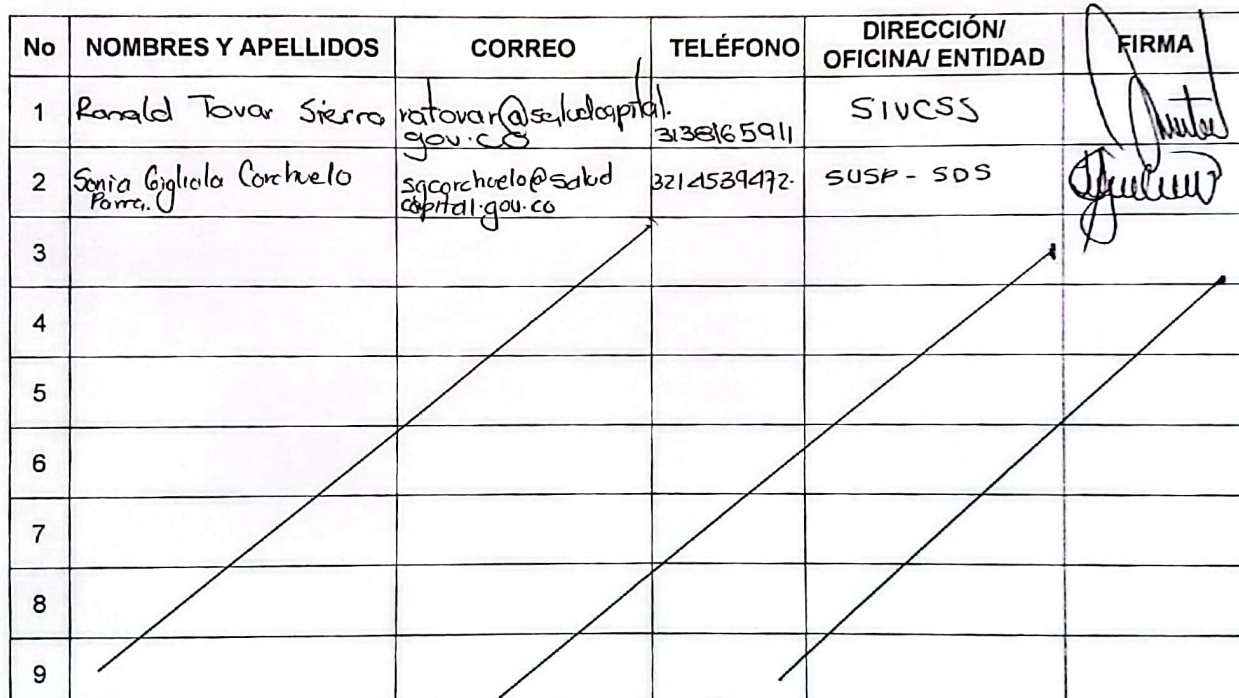 No NOMBRES Y APELLIDOS CORREO TELÉFONO DIRECCIÓN/ OFICINA/ ENTIDAD FIRMA
1 Ronald Tovar Sierra ratovar@saludcapital.
gov.co 3138165911 SIVCSS
2 Sonia Gigliola Corchuelo
Parra. sgcorchuelo@salud
capital.gov.co 3214539472. SUSP - SDS
3
4
5
6
7
8
9